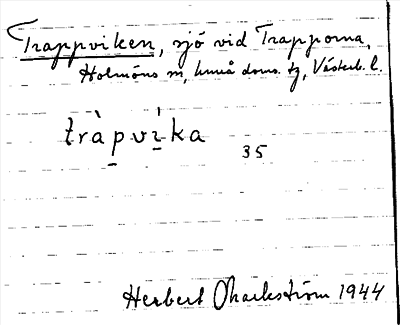 Trappviken, sjö vid Trapporna,
Holmöns sn, Umeå doms. tg, Västerb. l.
tràpvìka
35
Herbert Markström 1944